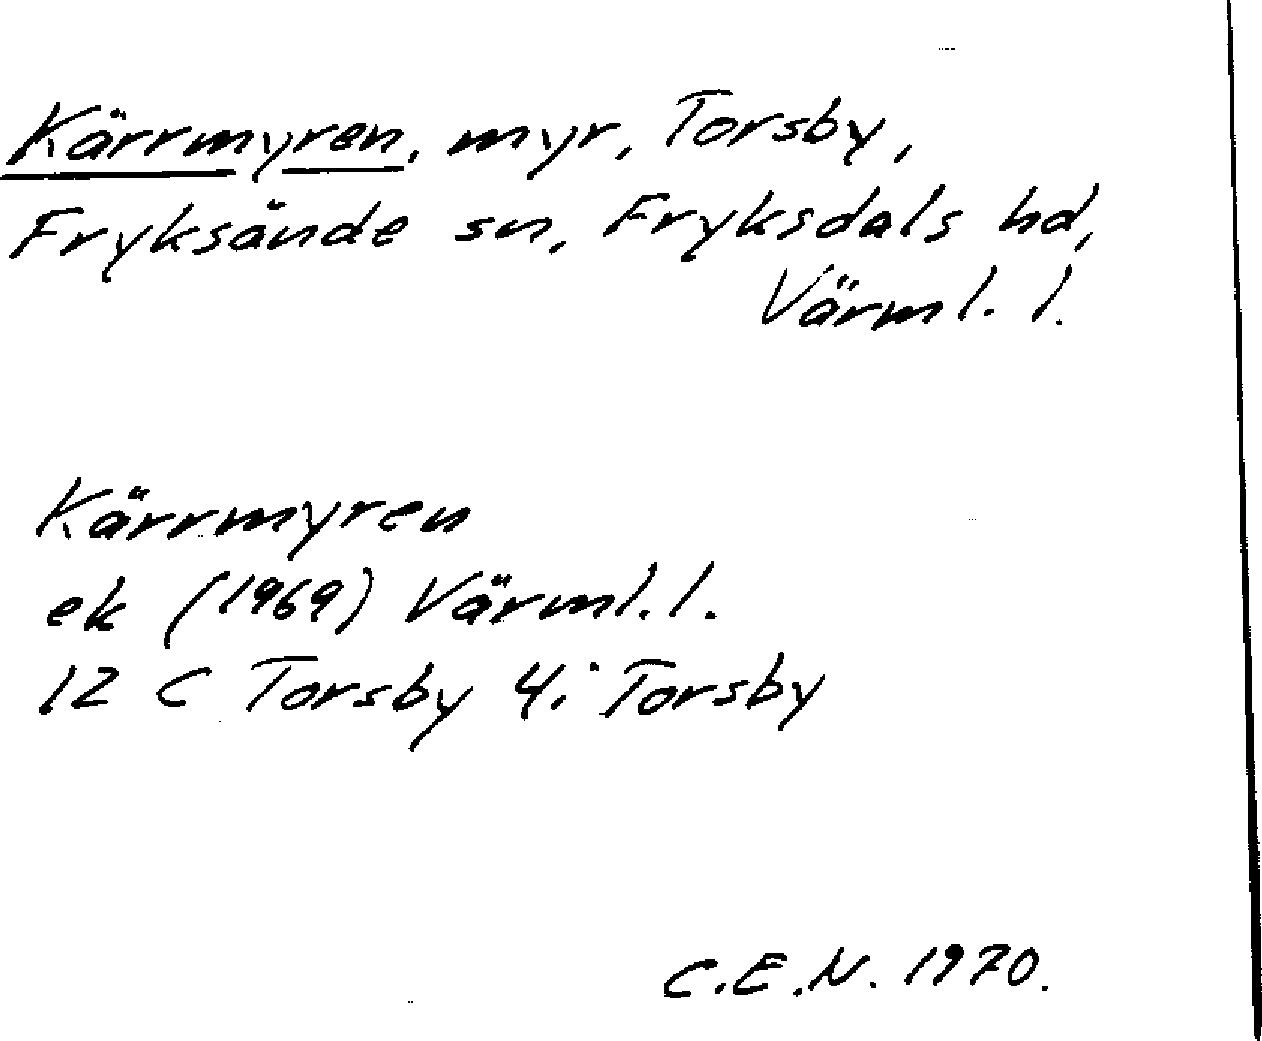 Kärrmyren, myr, Torsby,
Fryksände sn, Fryksdals hd,
Värml. l.
Kärrmyren
ek (1969) Värml. l.
12 C Torsby 4i Torsby
C.E.N. 1970.